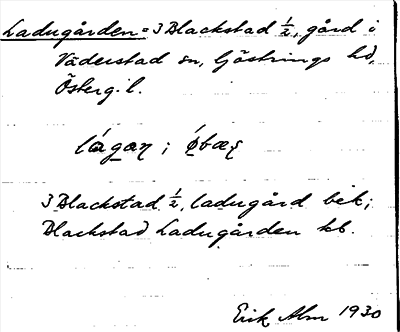 Ladugården = 3 Blackstad 1/2, gård i
Väderstad sn, Göstrings hd,
Österg. l.
lágan ; i
3 Blackstad 1/2, ladugård bik;
Blackstad Ladugården kb.
Erik Alm 1930